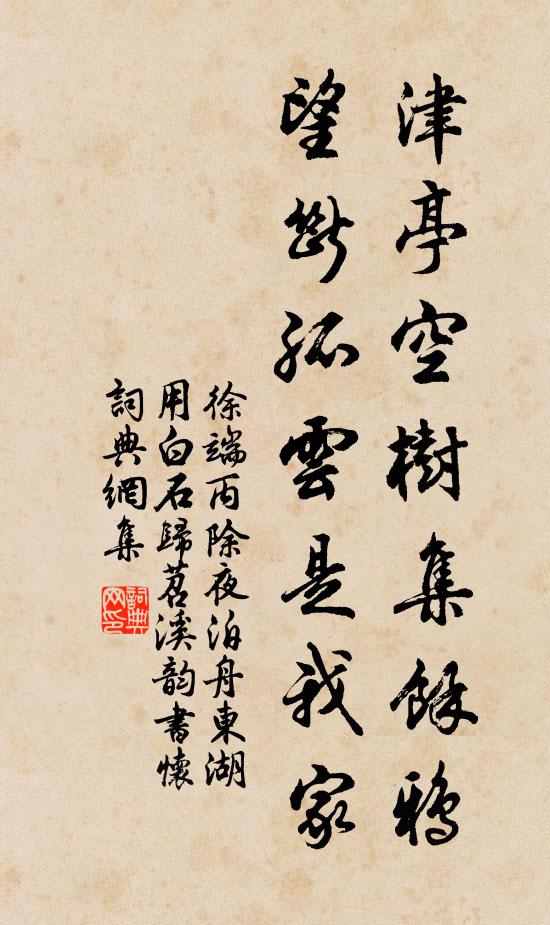 津亭空樹集餘鴉
望斷孤雲是我家
徐端丙除夜泊舟東湖
用白石歸苕溪韵書懷
詞典網集
詞典网印